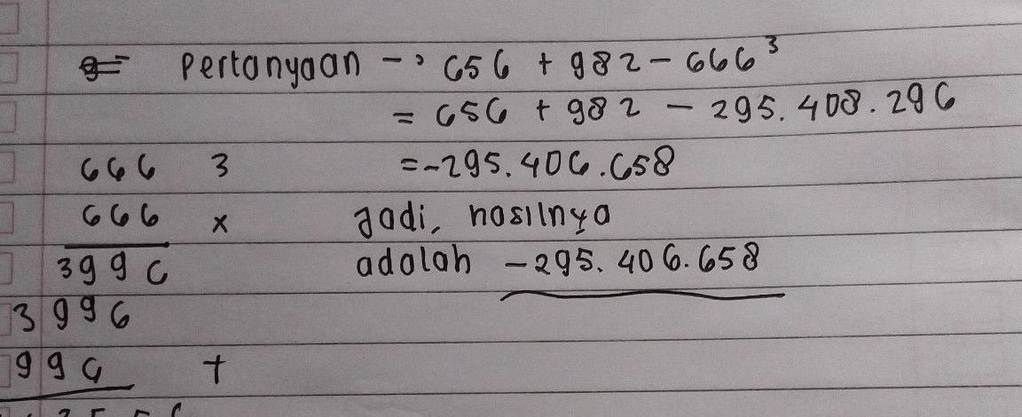 Pertanyaan -> 656 + 982 - 666³
= 656 + 982 - 295.408.296
666 3 =-295.406.658
666 x Jadi, hasilnya
3996 adalah -295.406.658
3996
996 +